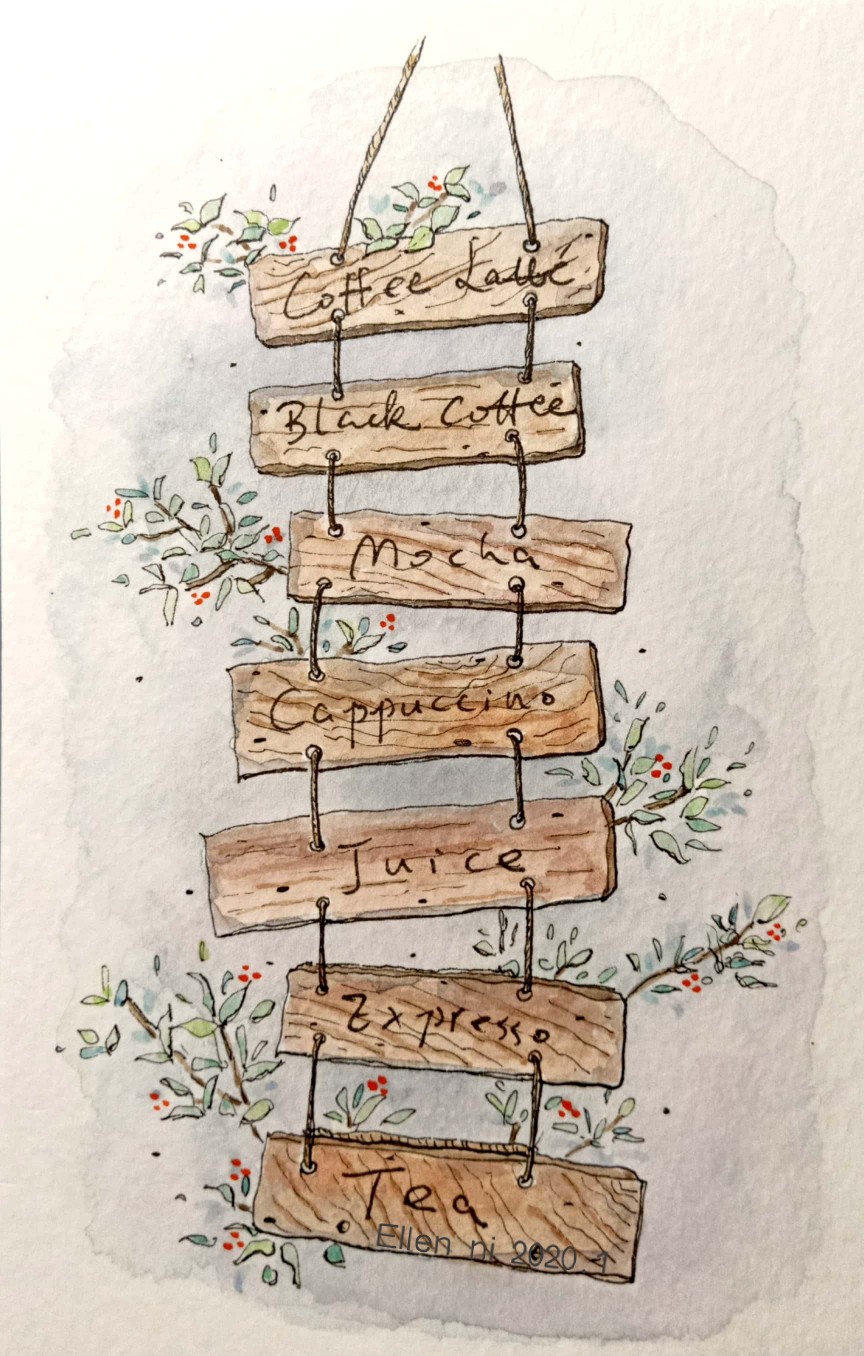 Coffee Latte
Black Coffee
Mocha
Cappuccino
Juice
Expresso
Tea
Ellen ni 2020.1